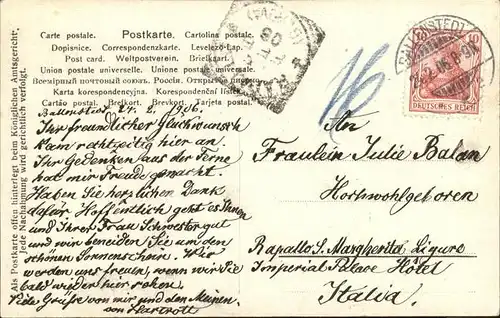 Carte postale. Postkarte. Cartolina postale.
Dopisnice. Correspondenzkarte. Levelező-Lap.
Post card. Weltpostverein. Briefkaart.
Union postale universelle. Unione postale universale.
Всемірный почтовый союз. Россія.
Karta korespondencyjna. Korespondenční lístek.
Cartão postal. Brefkort. Brevkort. Tarjeta postal.
Als Postkarte offen hinterlegt beim Königlichen Amtsgericht;
Jede Nachahmung wird gerichtlich verfolgt.
BALLENSTEDT
10
DEUTSCHES REICH
16
Ballenstedt 24. 2. 1906.
Ihr freundlicher Glückwunsch
kam rechtzeitig hier an.
Ihr Gedenken aus der Ferne
hat mir Freude gemacht.
Haben Sie herzlichen Dank
dafür. Hoffentlich geht es Ihnen
und Ihrer Frau Schwester gut
und wir beneiden Sie um den
schönen Sonnenschein. Wir
werden uns freuen, wenn wir Sie
bald wieder hier sehen.
Viele Grüße von mir und den Meinen.
von Hartrott
An
Fräulein Julie Balan
Hochwohlgeboren
Rapallo S. Margherita Ligure
Imperial Palace Hôtel
Italia.